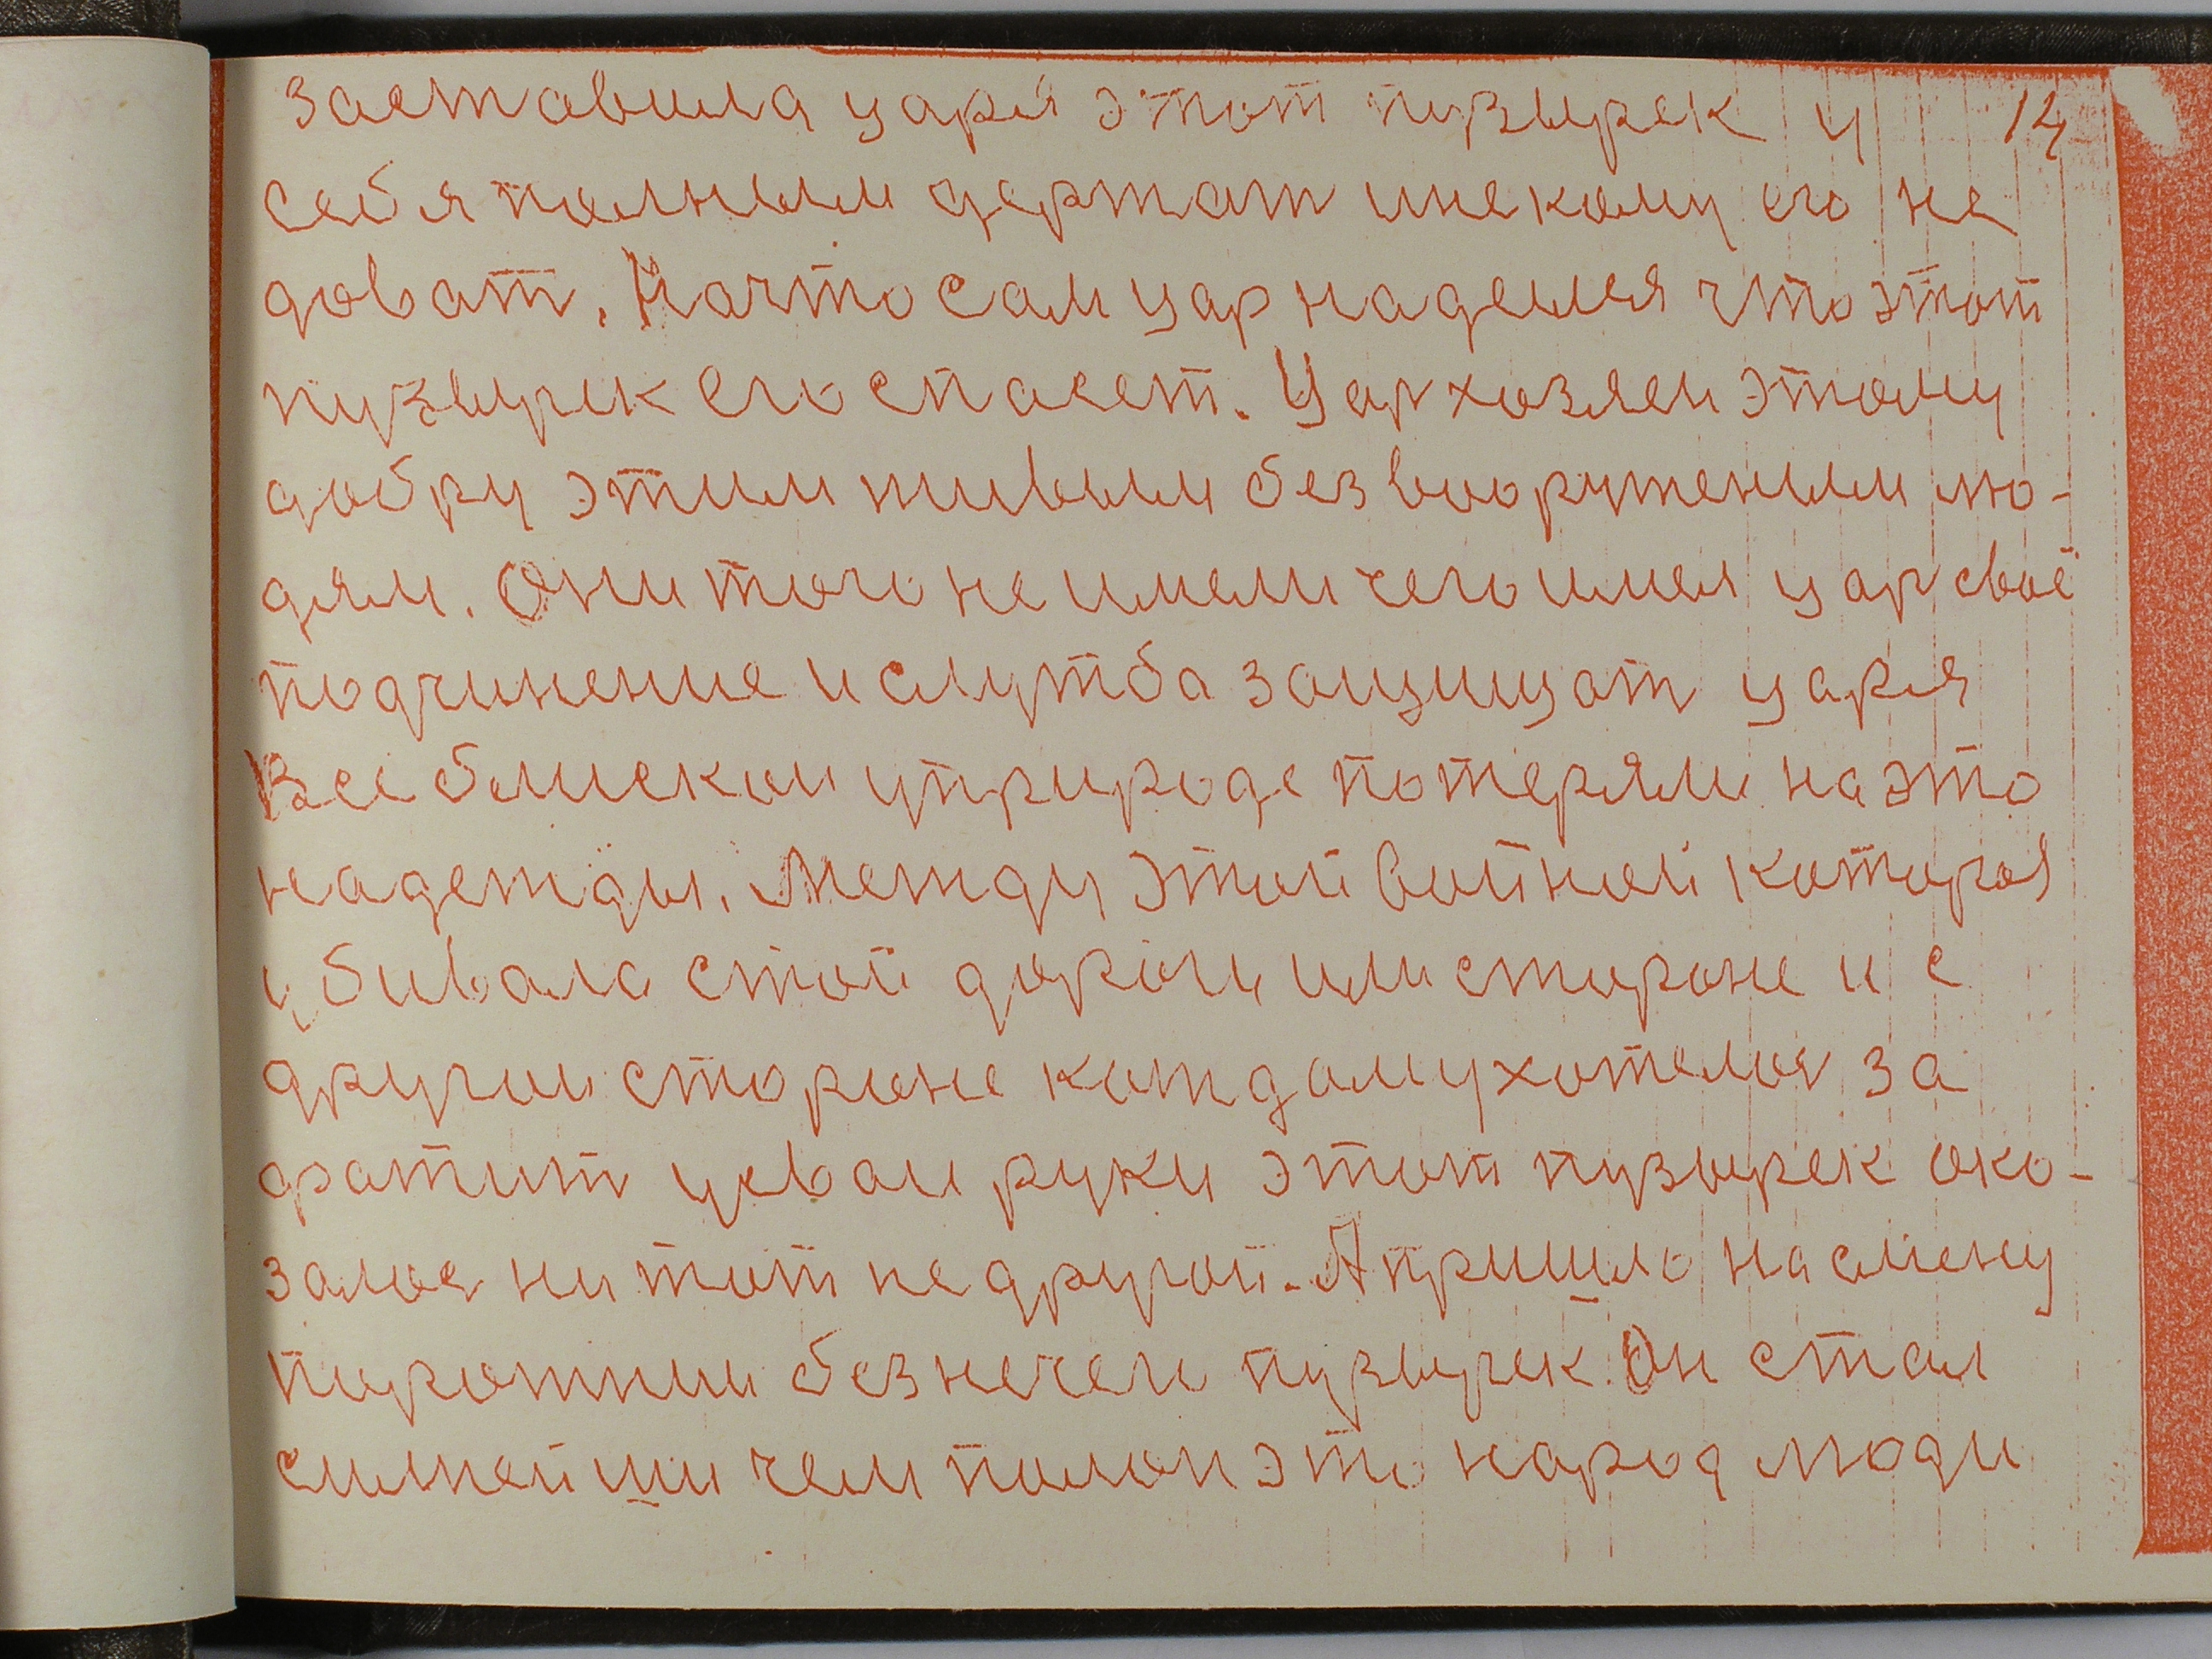 заставила царя этот пузырек у 14
себя полным держат инекому его не
доват. Начто сам цар наделся что этот
пузырек его спасет. Цар хозяен этому
добру этим живым без вооруженым лю-
дям. Они того не имели чего имел цар своё
подчинение и служба защищат царя
Все блиском уприроде потеряли на это
надежды. Между этой войной которая
убивала стой дороги или стороне и с
другои стороне каждому хотелос за
фатит усваи руки этот пузырек ока-
залос ни тот не другой. А пришло на смену
порожнии безнечем пузырек Он стал
силнейши чем полон это народ люди